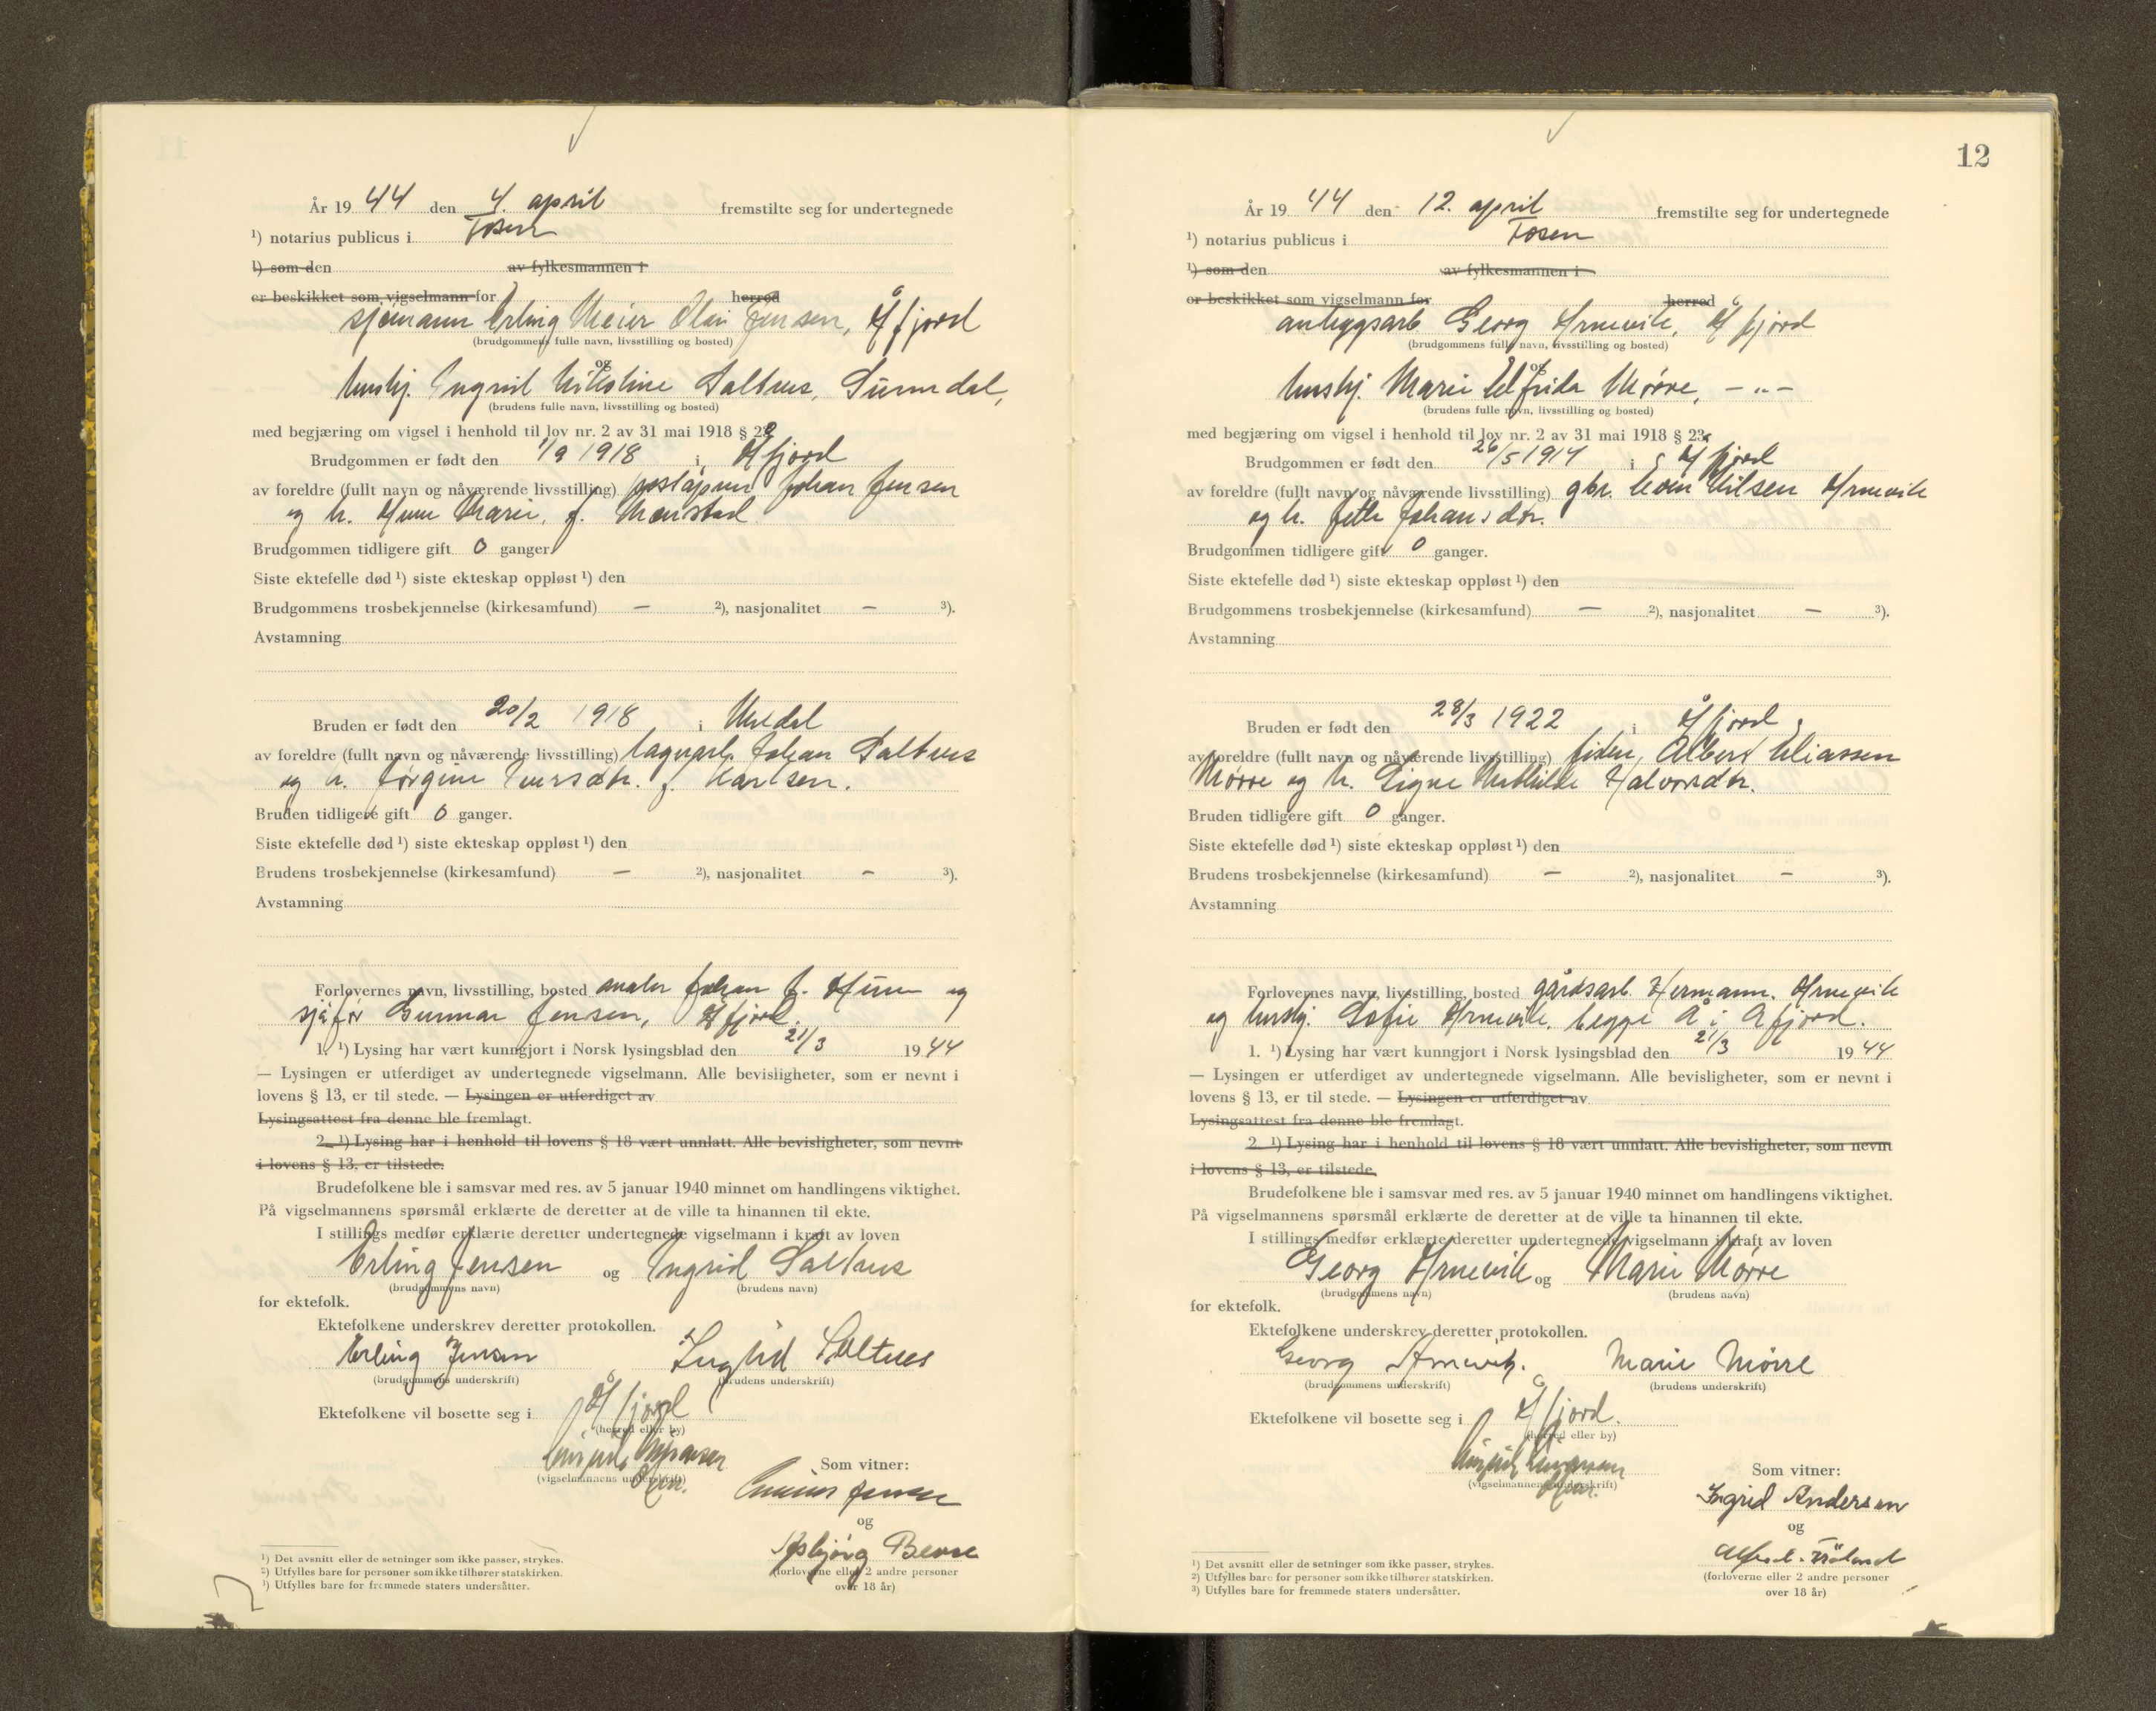 År 19 44 den 4. april fremstilte seg for undertegnede
¹) notarius publicus i Fosen
¹) som den av fylkesmannen i
er beskikket som vigselmann for herred
sjømann Erling Meier Olai Jensen, Åfjord
(brudgommens fulle navn, livsstilling og bosted)
og
hushj. Ingrid Nikoline Saltnes, Surndal,
(brudens fulle navn, livsstilling og bosted)
med begjæring om vigsel i henhold til lov nr. 2 av 31 mai 1918 § 23.
Brudgommen er født den 1/9 1918 i Åfjord
av foreldre (fullt navn og nåværende livsstilling) Johan Jensen
og h. Marie, f.
Brudgommen tidligere gift 0 ganger.
Siste ektefelle død ¹) siste ekteskap oppløst ¹) den
Brudgommens trosbekjennelse (kirkesamfund) — ²), nasjonalitet — ³).
Avstamning
Bruden er født den 20/2 1918 i
av foreldre (fullt navn og nåværende livsstilling) Johan Saltnes
og h. Jørgine f. Karlsen.
Bruden tidligere gift 0 ganger.
Siste ektefelle død ¹) siste ekteskap oppløst ¹) den
Brudens trosbekjennelse (kirkesamfund) — ²), nasjonalitet — ³).
Avstamning
Forlovernes navn, livsstilling, bosted Johan og
sjåfør Gunnar Jensen, Åfjord.
1. ¹) Lysing har vært kunngjort i Norsk lysingsblad den 21/3 19 44
— Lysingen er utferdiget av undertegnede vigselmann. Alle bevisligheter, som er nevnt i
lovens § 13, er til stede. — Lysingen er utferdiget av
Lysingsattest fra denne ble fremlagt.
2. ¹) Lysing har i henhold til lovens § 18 vært unnlatt. Alle bevisligheter, som nevnt
i lovens § 13, er tilstede.
Brudefolkene ble i samsvar med res. av 5 januar 1940 minnet om handlingens viktighet.
På vigselmannens spørsmål erklærte de deretter at de ville ta hinannen til ekte.
I stillings medfør erklærte deretter undertegnede vigselmann i kraft av loven
Erling Jensen og Ingrid Saltnes
(brudgommens navn) (brudens navn)
for ektefolk.
Ektefolkene underskrev deretter protokollen.
Erling Jensen Ingrid Saltnes
(brudgommens underskrift) (brudens underskrift)
Ektefolkene vil bosette seg i Åfjord
(herred eller by)
(vigselmannens underskrift)
Som vitner:
Jensen
og
Asbjørg
(forloverne eller 2 andre personer
over 18 år)
¹) Det avsnitt eller de setninger som ikke passer, strykes.
²) Utfylles bare for personer som ikke tilhører statskirken.
³) Utfylles bare for fremmede staters undersåtter.
12
År 19 44 den 12. april fremstilte seg for undertegnede
¹) notarius publicus i Fosen
¹) som den av fylkesmannen i
er beskikket som vigselmann for herred
anleggsarb. Georg Arnevik, Åfjord
(brudgommens fulle navn, livsstilling og bosted)
og
hushj. Marie Elfrida Mørre, — „ —
(brudens fulle navn, livsstilling og bosted)
med begjæring om vigsel i henhold til lov nr. 2 av 31 mai 1918 § 23.
Brudgommen er født den 26/5 1914 i Åfjord
av foreldre (fullt navn og nåværende livsstilling) gbr. Nilsen Arnevik
og h. Johansdtr.
Brudgommen tidligere gift 0 ganger.
Siste ektefelle død ¹) siste ekteskap oppløst ¹) den
Brudgommens trosbekjennelse (kirkesamfund) — ²), nasjonalitet — ³).
Avstamning
Bruden er født den 28/3 1922 i Åfjord
av foreldre (fullt navn og nåværende livsstilling) Albert Eliassen
Mørre og h. Signe Mathilde Halvorsdtr.
Bruden tidligere gift 0 ganger.
Siste ektefelle død ¹) siste ekteskap oppløst ¹) den
Brudens trosbekjennelse (kirkesamfund) — ²), nasjonalitet — ³).
Avstamning
Forlovernes navn, livsstilling, bosted gårdsarb. Hermann Arnevik
og hushj. Sofie Arnevik, begge Å i Åfjord.
1. ¹) Lysing har vært kunngjort i Norsk lysingsblad den 21/3 19 44
— Lysingen er utferdiget av undertegnede vigselmann. Alle bevisligheter, som er nevnt i
lovens § 13, er til stede. — Lysingen er utferdiget av
Lysingsattest fra denne ble fremlagt.
2 ¹) Lysing har i henhold til lovens § 18 vært unnlatt. Alle bevisligheter, som nevnt
i lovens § 13, er tilstede.
Brudefolkene ble i samsvar med res. av 5 januar 1940 minnet om handlingens viktighet.
På vigselmannens spørsmål erklærte de deretter at de ville ta hinannen til ekte.
I stillings medfør erklærte deretter undertegnede vigselmann i kraft av loven
Georg Arnevik og Marie Mørre
(brudgommens navn) (brudens navn)
for ektefolk.
Ektefolkene underskrev deretter protokollen.
Georg Arnevik. Marie Mørre
(brudgommens underskrift) (brudens underskrift)
Ektefolkene vil bosette seg i Åfjord.
(herred eller by)
(vigselmannens underskrift)
Som vitner:
Ingrid Andersen
og
(forloverne eller 2 andre personer
over 18 år)
¹) Det avsnitt eller de setninger som ikke passer, strykes.
²) Utfylles bare for personer som ikke tilhører statskirken.
³) Utfylles bare for fremmede staters undersåtter.